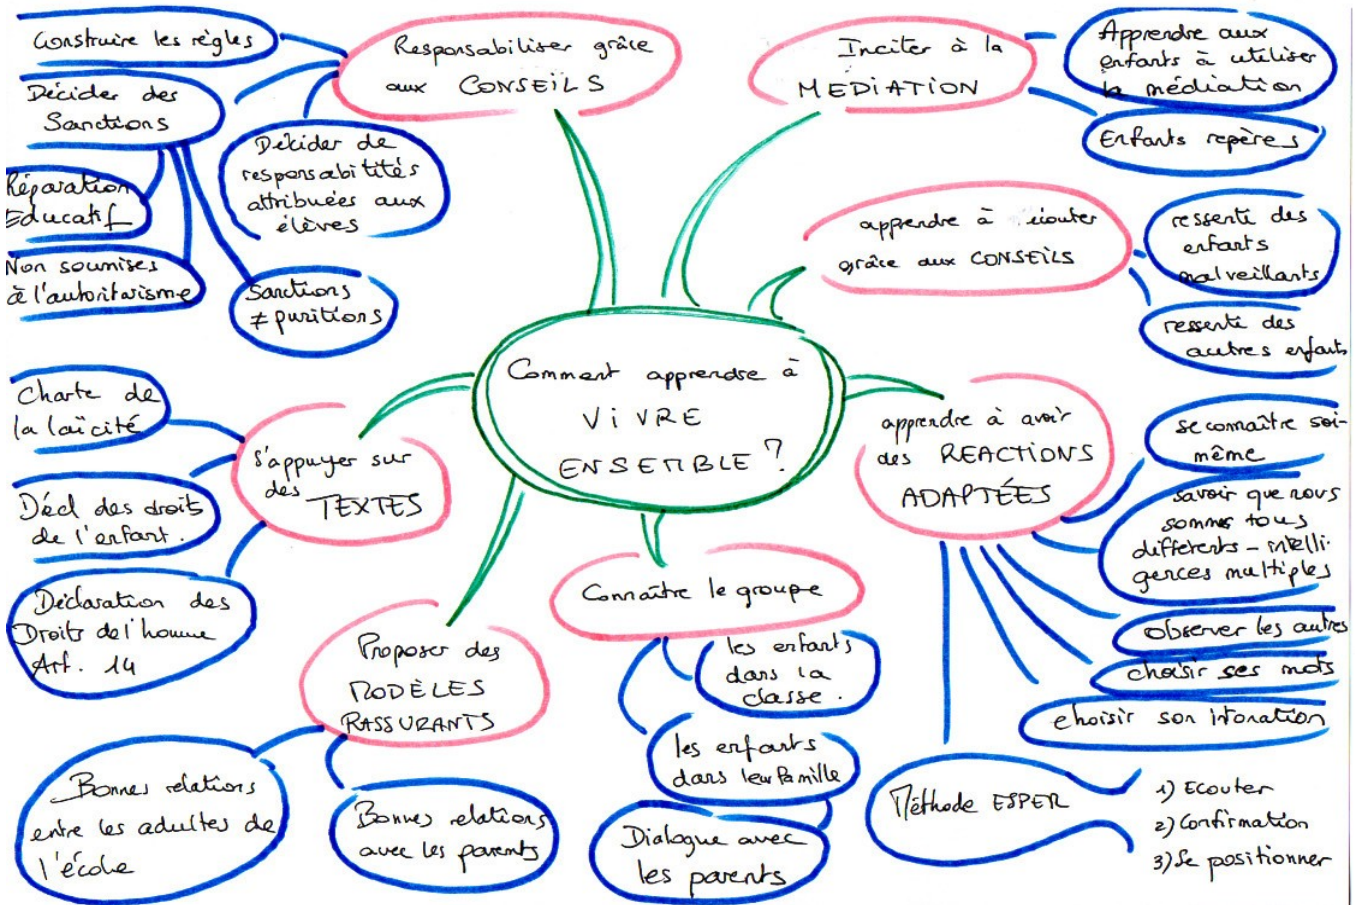 Comment apprendre à
VIVRE
ENSEMBLE ?
Responsabiliser grâce
aux CONSEILS
Construire les règles
Décider des
Sanctions
Réparation
Educatif
Non soumises
à l'autoritarisme
Sanctions
≠ punitions
Décider de
responsabilités
attribuées aux
élèves
Inciter à la
MEDIATION
Apprendre aux
enfants à utiliser
la médiation
Enfants repères
apprendre à écouter
grâce aux CONSEILS
ressenti des
enfants
malveillants
ressenti des
autres enfants
apprendre à avoir
des REACTIONS
ADAPTÉES
se connaître soi-
même
savoir que nous
sommes tous
différents - intelli-
gences multiples
observer les autres
choisir ses mots
choisir son intonation
Méthode ESPER
1) Ecouter
2) Confirmation
3) Se positionner
Connaître le groupe
les enfants
dans la
classe.
les enfants
dans leur famille
Dialogue avec
les parents
Proposer des
MODÈLES
RASSURANTS
Bonnes relations
entre les adultes de
l'école
Bonnes relations
avec les parents
s'appuyer sur
des TEXTES
Charte de
la laïcité
Décl des droits
de l'enfant.
Déclaration des
Droits de l'homme
Art. 14